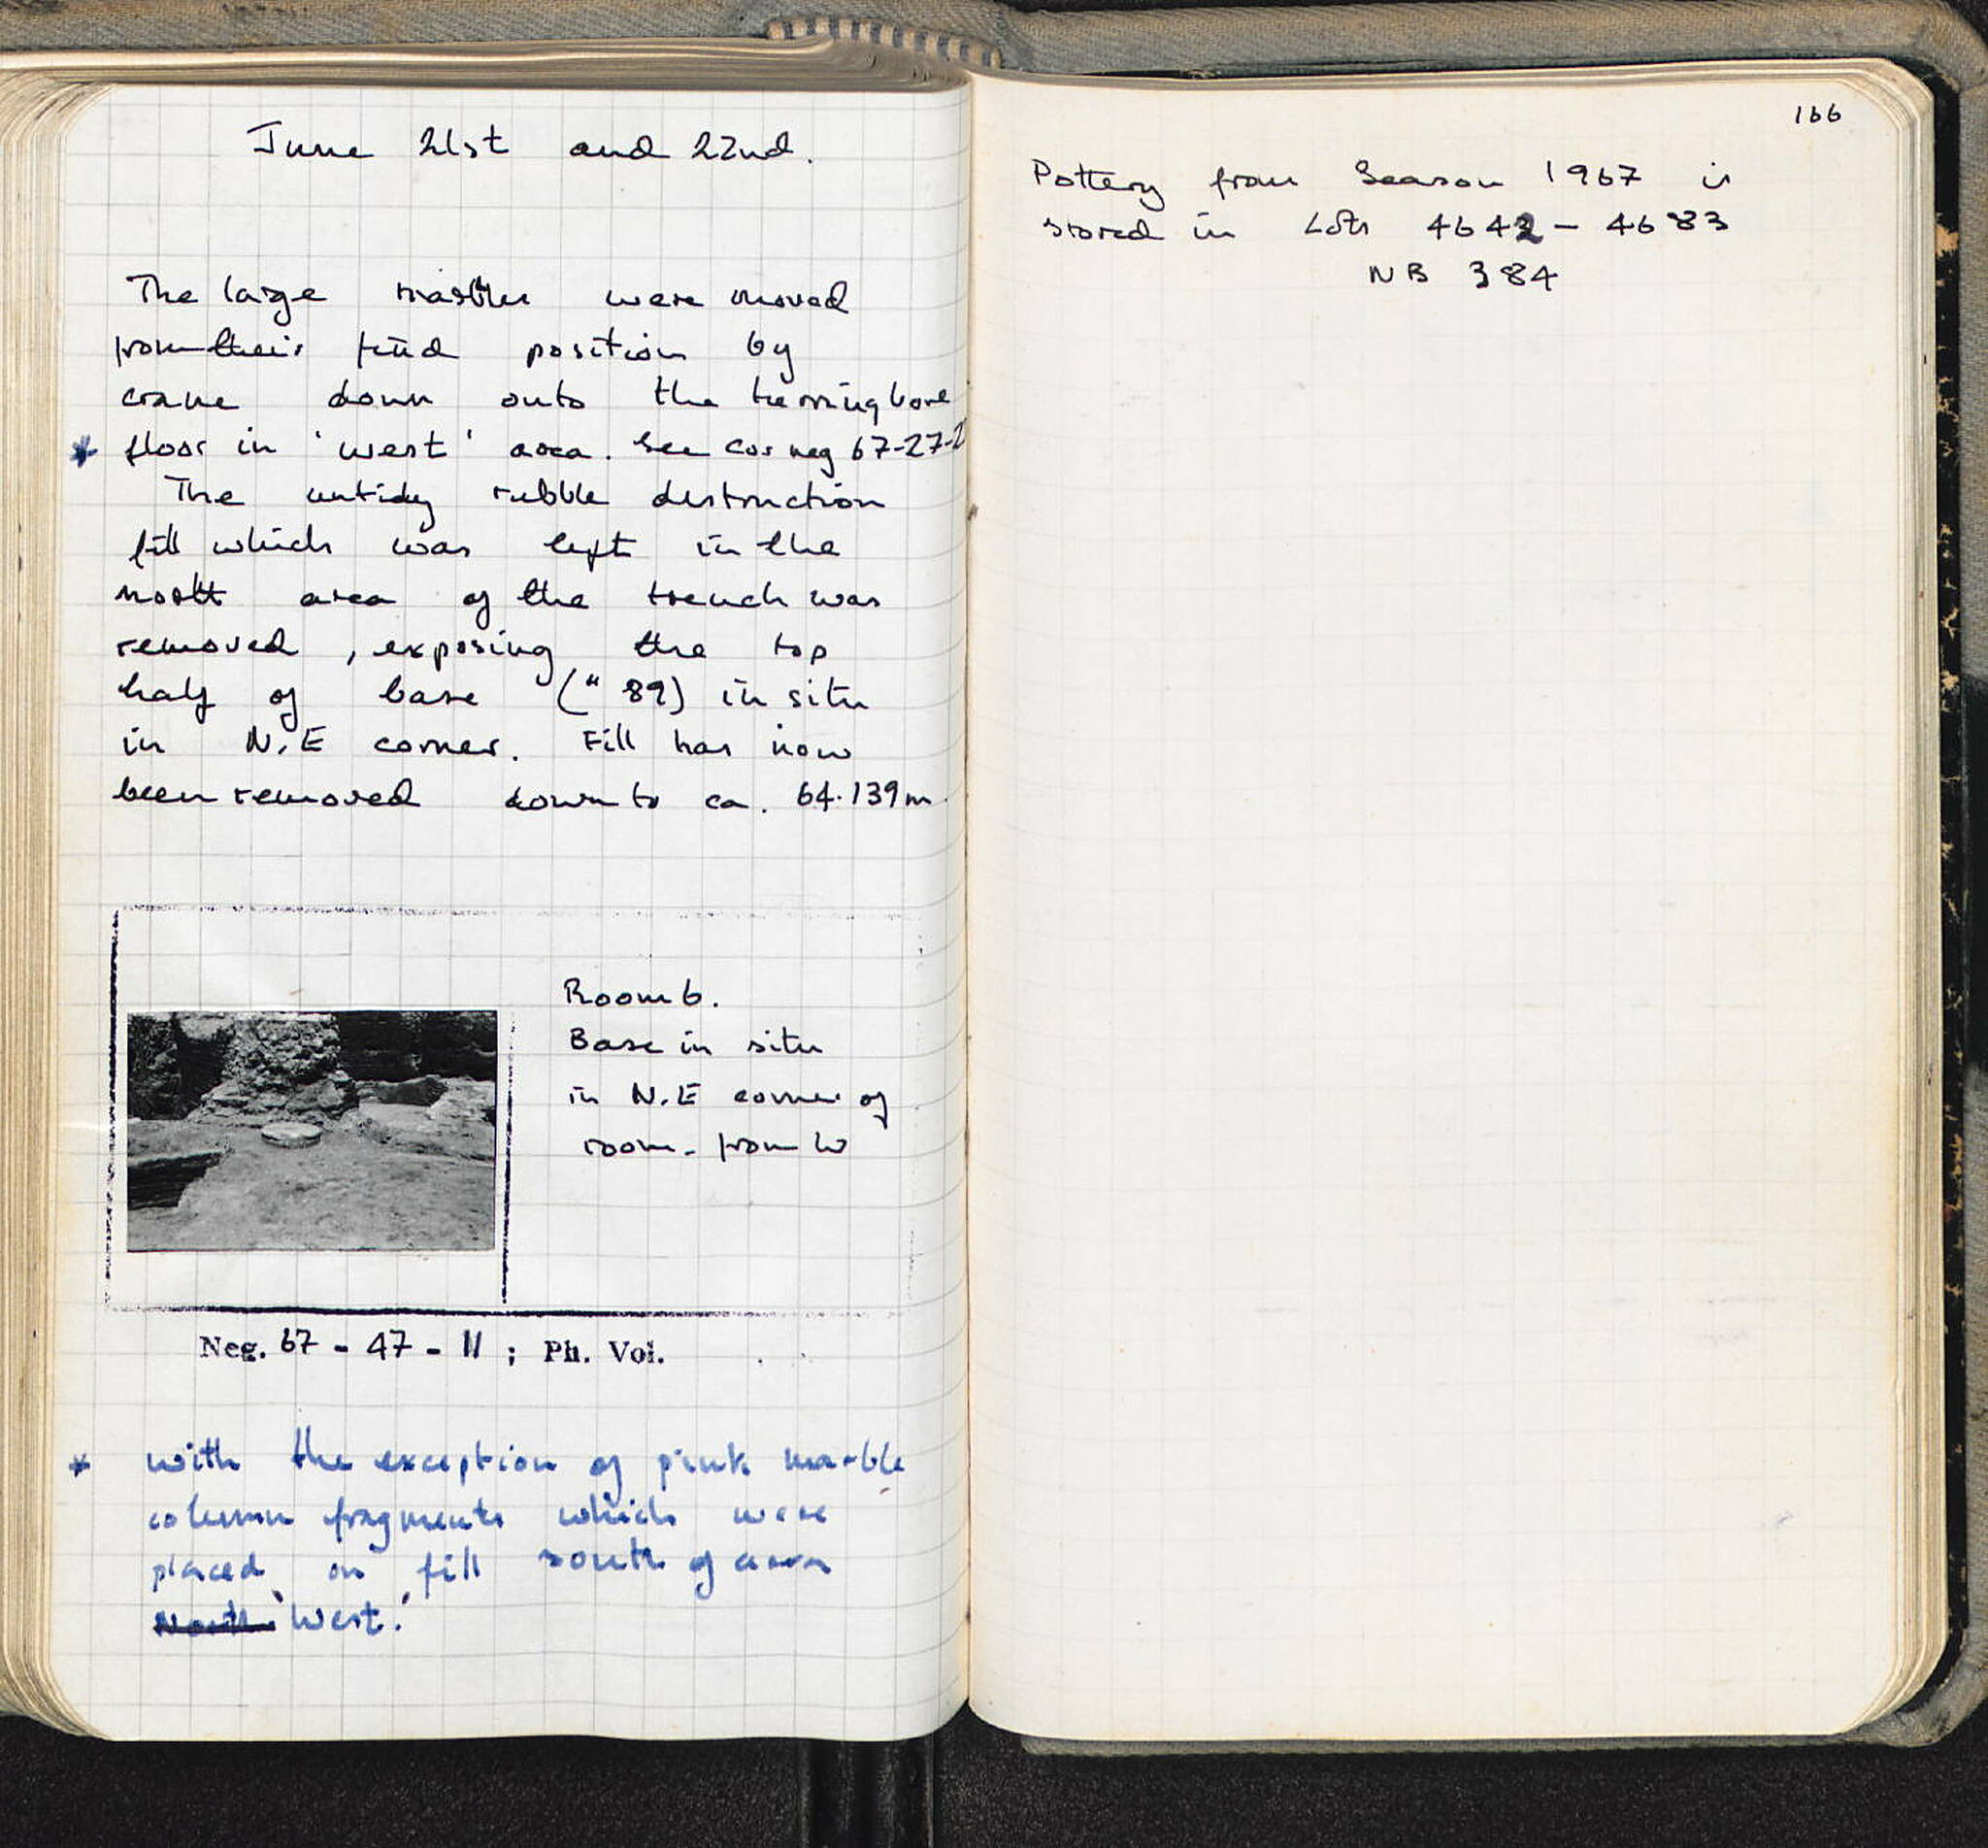 June 21st and 22nd.
The large marbles were moved
from their find position by
crane down onto the herringbone
* floor in 'west' area. See Cor neg 67-27-2
The untidy rubble destruction
fill which was left in the
north area of the trench was
removed, exposing the top
half of base (" 89) in situ
in N.E corner. Fill has now
been removed down to ca. 64.139m.
Room 6.
Base in situ
in N.E corner of
room - from W
Neg. 67 - 47 - 11 ; Ph. Vol.
* with the exception of pink marble
column fragments which were
placed on fill south of area
North 'West.'
166
Pottery from Season 1967 is
stored in Lots 4642 - 4683
NB 384